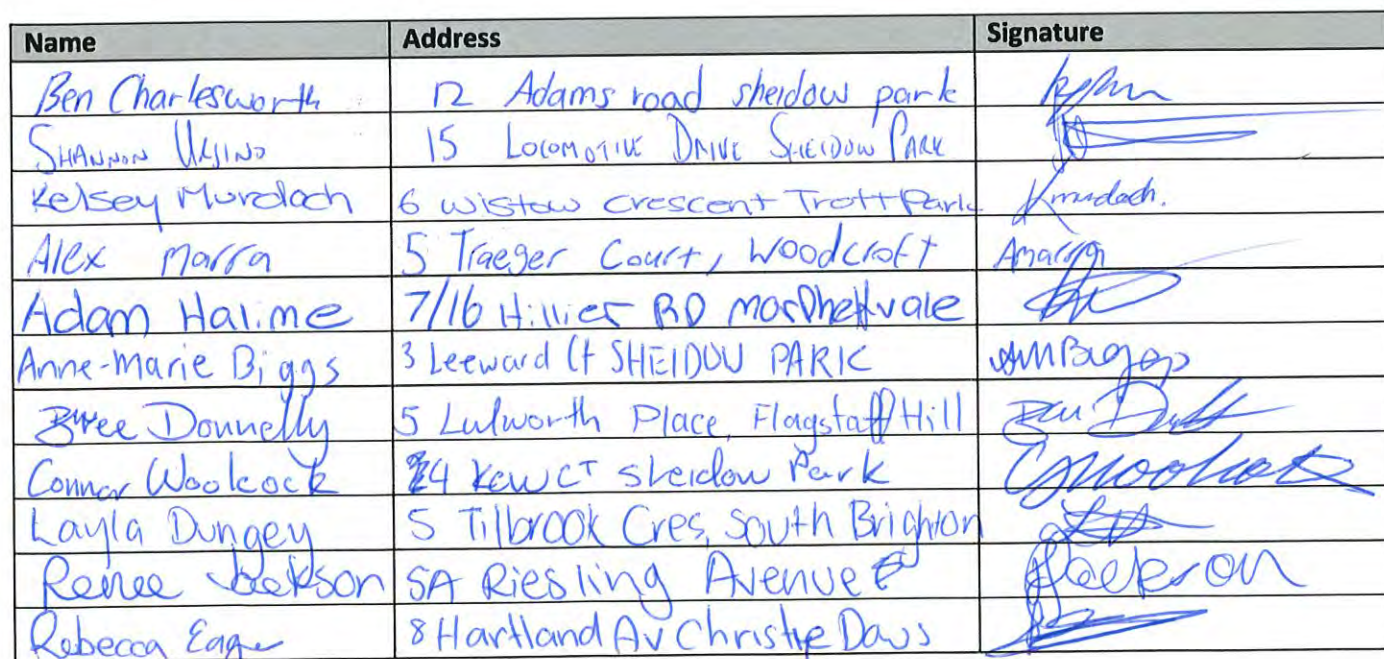 Name Address Signature
Ben Charlesworth 12 Adams road sheidow park
SHANNON URSINO 15 LOCOMOTIVE DRIVE SHEIDOW PARK
Kelsey Murdoch 6 wistow crescent Trott Park Kmurdoch.
Alex Marra 5 Traeger Court, Woodcroft Amarra
Adam Halime 7/16 Hillier RD morphettvale
Anne-Marie Biggs 3 Leeward Ct SHEIDOW PARK AMBiggs
Bree Donnelly 5 Lulworth Place, Flagstaff Hill
Connor Woolcock 24 Kew CT sheidow Park
Layla Dungey 5 Tilbrook Cres, South Brighton
Renee Jackson 5A Riesling Avenue Jackson
Rebecca Eagle 8 Hartland Av Christie Downs